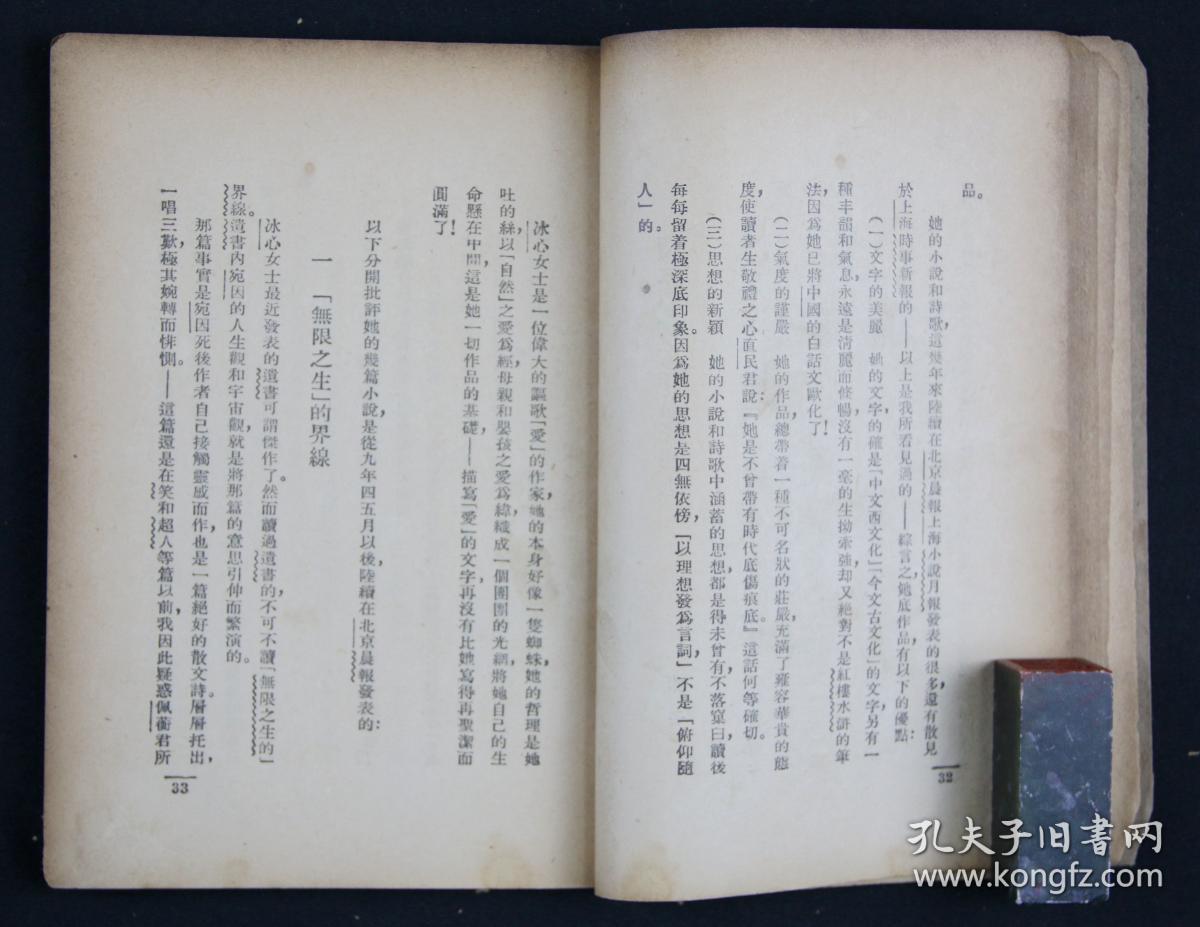 品。
她的小說和詩歌，這幾年來陸續在北京晨報上海小說月報發表的很多，還有散見
於上海時事新報的——以上是我所看見過的——綜言之，她底作品，有以下的優點：
（一）文字的美麗　她的文字，的確是「中文西文化」「今文古文化」的文字，另有一
種丰韻和氣息，永遠是清麗而條暢，沒有一毫的生拗牽強，却又絕對不是紅樓水滸的筆
法，因爲她已將中國的白話文歐化了！
（二）氣度的謹嚴　她的作品，總帶着一種不可名狀的莊嚴，充滿了雍容華貴的態
度，使讀者生敬禮之心，直民君說：『她是不曾帶有時代底傷痕底。』這話何等確切。
（三）思想的新穎　她的小說和詩歌中涵蓄的思想，都是得未曾有，不落窠臼，讀後
每每留着極深底印象。因爲她的思想是四無依傍，「以理想發爲言詞」不是「俯仰隨
人」的。
32
冰心女士是一位偉大的謳歌「愛」的作家，她的本身好像一隻蜘蛛，她的哲理是她
吐的絲，以「自然」之愛爲經，母親和嬰孩之愛爲緯，織成一個團團的光網，將她自己的生
命懸在中間，這是她一切作品的基礎，——描寫「愛」的文字，再沒有比她寫得再聖潔而
圓滿了！
以下分開批評她的幾篇小說，是從九年四五月以後，陸續在北京晨報發表的：
一　「無限之生」的界線
冰心女士最近發表的遺書可謂傑作了。然而讀過遺書的，不可不讀「無限之生的」
界線。遺書內宛因的人生觀和宇宙觀，就是將那篇的意思引伸而繁演的。
那篇事實是宛因死後作者自己接觸靈感而作，也是一篇絕好的散文詩。層層托出，
一唱三歎，極其婉轉而悱惻。——這篇還是在笑和超人等篇以前，我因此疑惑佩蘅君所
33
孔夫子旧书网
www.kongfz.com